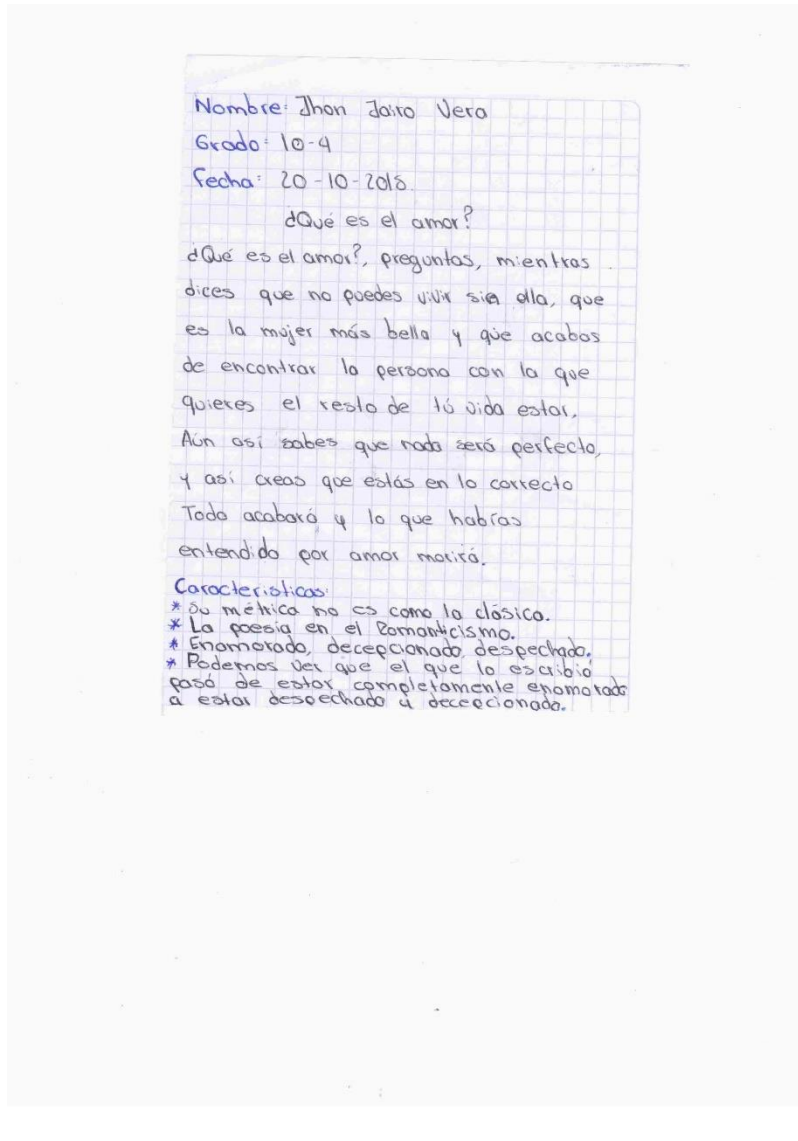 Nombre: Jhon Jairo Vera
Grado: 10-4
fecha: 20-10-2018.
¿Qué es el amor?
¿Qué es el amor?, preguntas, mientras
dices que no puedes vivir sin ella, que
es la mujer más bella y que acabas
de encontrar la persona con la que
quieres el resto de tú vida estar,
Aún así sabes que nada será perfecto,
y así creas que estás en lo correcto
Todo acabará y lo que habías
entendido por amor morirá.
Caracteristicas:
* Su métrica no es como la clásica.
* La poesía en el Romanticismo.
* Enamorado, decepcionado, despechado.
* Podemos ver que el que lo escribió
pasó de estar completamente enamorado
a estar despechado y decepcionado.